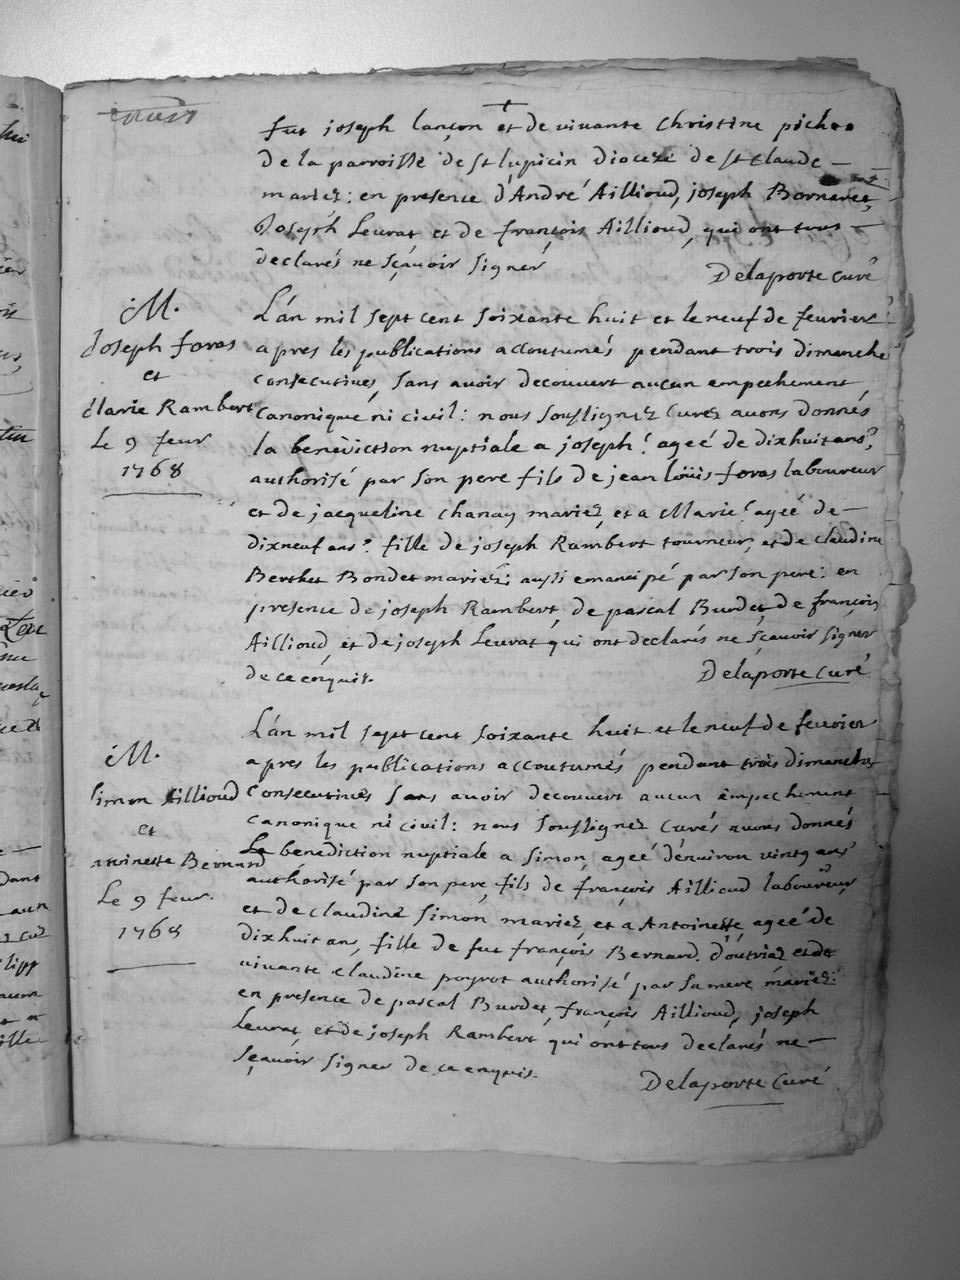 feu joseph lançon et de vivante Christine pichon
de la parroisse de st lupicin diocèze de st Claude
mariez: en presence d'André Aillioud, joseph Bornaret,
Joseph Leurat et de françois Aillioud, qui ont tous
declarés ne sçavoir signer
Delaporte Curé
M.
Joseph foras
et
Marie Rambert
Le 9 feur
1768
L'an mil sept cent soixante huit et le neuf de feurier
apres les publications accoutumés pendant trois dimanche
consecutives, sans avoir decouvert aucun empechement
canonique ni civil: nous soussignez Curez avons donnés
la benèdiction nuptiale a joseph! ageé de dixhuit ans?
authorisé par son pere fils de jean loüis foras laboureur
et de jacqueline Chanay mariez, et a Marie! ageé de
dixneuf ans? fille de joseph Rambert tourneur, et de Claudine
Berthet Bondet mariez: aussi emancipé par son pere: en
presence de joseph Rambert, de pascal Burdet, de françois
Aillioud, et de joseph Leurat qui ont declarés ne sçavoir signer
de ce enquis.
Delaporte Curé
M.
simon Aillioud
et
antoinette Bernard
Le 9 feur.
1768
L'an mil sept cent soixante huit et le neuf de feurier
apres les publications accoutumés pendant trois dimanches
Consecutives sans avoir decouvert aucun empechement
canonique ni civil: nous soussignez Curés avons donnés
La benediction nuptiale a simon, ageé d'enuiron vingt ans
authorisé par son pere, fils de françois Aillioud laboureur
et de Claudine simon mariez, et a Antoinette, ageé de
dixhuit ans, fille de feu françois Bernard d'outriaz et de
vivante Claudine poyvot authorisé par sa mere mariez:
en presence de pascal Burdet, françois Aillioud, joseph
Leurat, et de joseph Rambert qui ont tous declarés ne
sçavoir signer de ce enquis.
Delaporte Curé